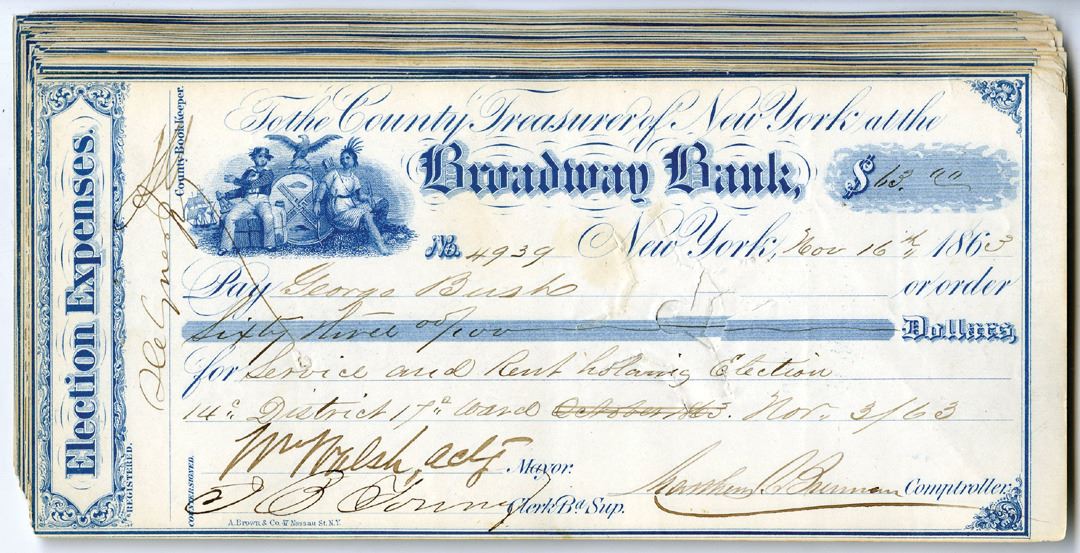 Election Expenses.
REGISTERED.
County Bookkeeper.
COUNTERSIGNED.
To the County Treasurer of New York at the
Broadway Bank,
$ 63.00
No. 4939 New York, Nov 16th, 1863
Pay George Bush or order
Sixty three 00/100 Dollars,
for Service and Rent holding Election
14th District 17th Ward October /63. Nov. 3/63
Wm Walsh, actg Mayor.
J B Young Clerk Bd Sup.
Matthew T Brennan Comptroller.
A. Brown & Co. 47 Nassau St. N.Y.